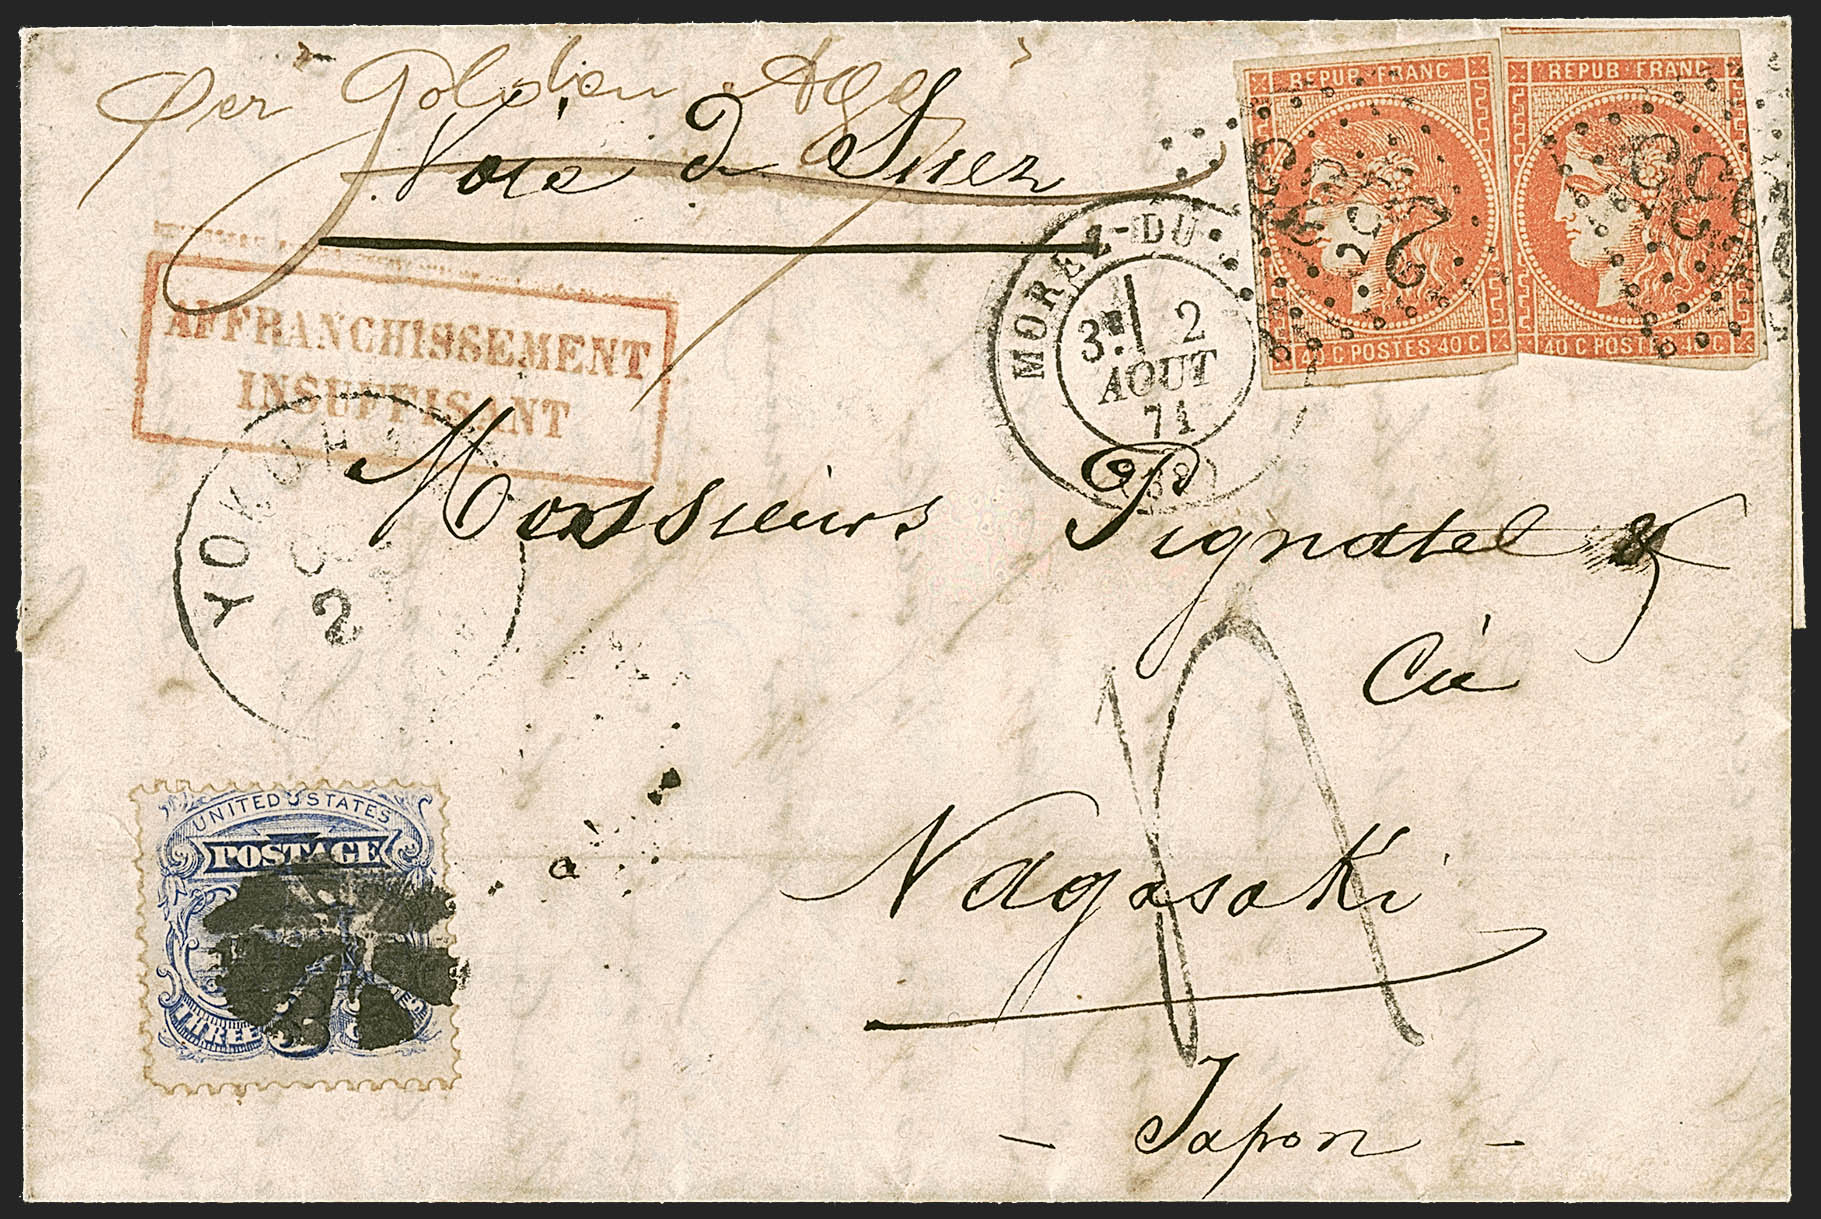 per "Golden Age"
Voie d Suez
REPUB·FRANC
40 C POSTES 40 C
REPUB·FRANC
40 C POSTES 40 C
MOREZ-DU
3E 2
AOUT
71
AFFRANCHISSEMENT
INSUFFISANT
YOKOHA
2
Messieurs Pignatel &
Cie
à Nagasaki
- Japon -
UNITED STATES
POSTAGE
THREE 3 CENTS